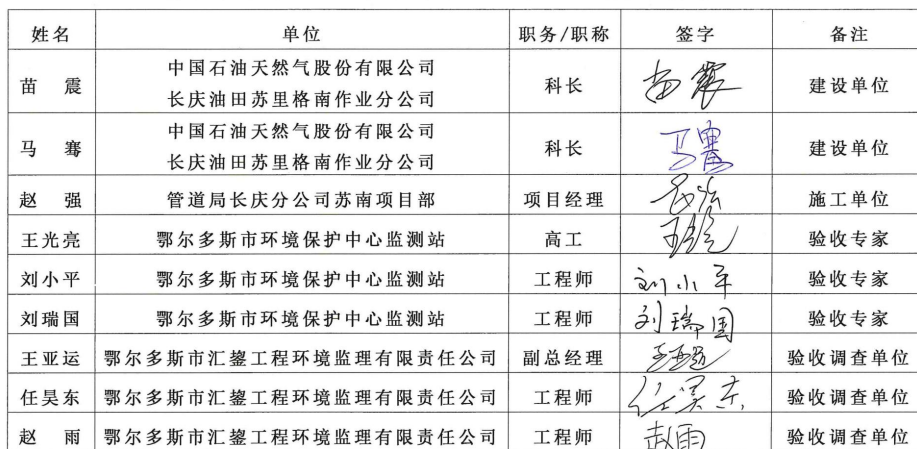 姓名 单位 职务/职称 签字 备注
中国石油天然气股份有限公司
苗 震 科长 苗震 建设单位
长庆油田苏里格南作业分公司
中国石油天然气股份有限公司
马 骞 科长 马骞 建设单位
长庆油田苏里格南作业分公司
赵 强 管道局长庆分公司苏南项目部 项目经理 施工单位
王光亮 鄂尔多斯市环境保护中心监测站 高工 验收专家
刘小平 鄂尔多斯市环境保护中心监测站 工程师 刘小平 验收专家
刘瑞国 鄂尔多斯市环境保护中心监测站 工程师 刘瑞国 验收专家
王亚运 鄂尔多斯市汇鋆工程环境监理有限责任公司 副总经理 王亚运 验收调查单位
任昊东 鄂尔多斯市汇鋆工程环境监理有限责任公司 工程师 任昊东 验收调查单位
赵 雨 鄂尔多斯市汇鋆工程环境监理有限责任公司 工程师 赵雨 验收调查单位